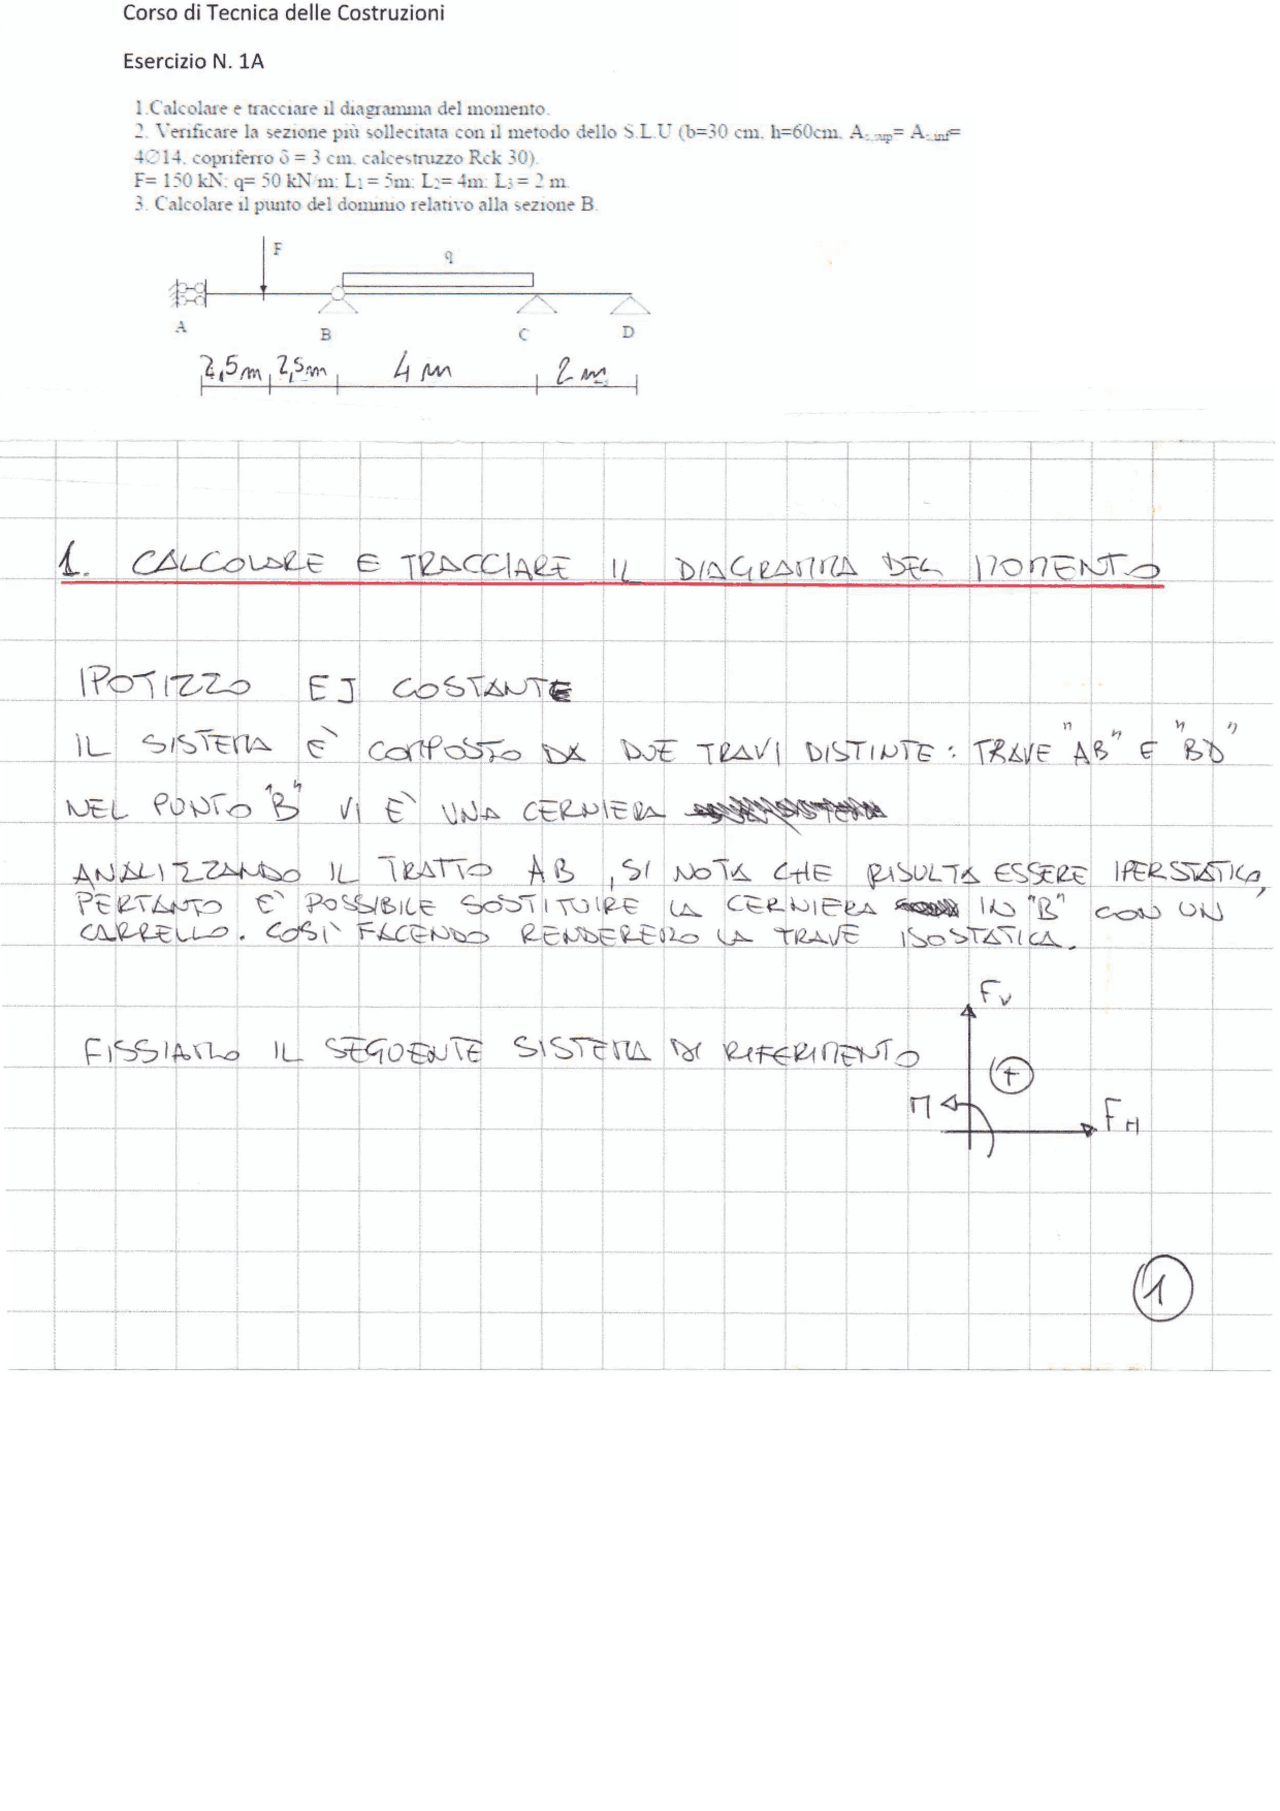 Corso di Tecnica delle Costruzioni
Esercizio N. 1A
1.Calcolare e tracciare il diagramma del momento.
2. Verificare la sezione più sollecitata con il metodo dello S.L.U (b=30 cm, h=60cm, As,sup= As,inf=
4∅14, copriferro δ = 3 cm, calcestruzzo Rck 30).
F= 150 kN; q= 50 kN/m; L1 = 5m; L2= 4m; L3 = 2 m.
3. Calcolare il punto del dominio relativo alla sezione B.
F
q
A B C D
2,5m 2,5m 4 m 2 m
1. CALCOLARE E TRACCIARE IL DIAGRAMMA DEL MOMENTO
IPOTIZZO EJ COSTANTE
IL SISTEMA È COMPOSTO DA DUE TRAVI DISTINTE: TRAVE "AB" E "BD"
NEL PUNTO "B" VI E' UNA CERNIERA
ANALIZZANDO IL TRATTO AB, SI NOTA CHE RISULTA ESSERE IPERSTATICA,
PERTANTO E' POSSIBILE SOSTITUIRE LA CERNIERA IN "B" CON UN
CARRELLO. COSÌ FACENDO RENDEREMO LA TRAVE ISOSTATICA.
FISSIAMO IL SEGUENTE SISTEMA DI RIFERIMENTO
FV
+
M
FH
1